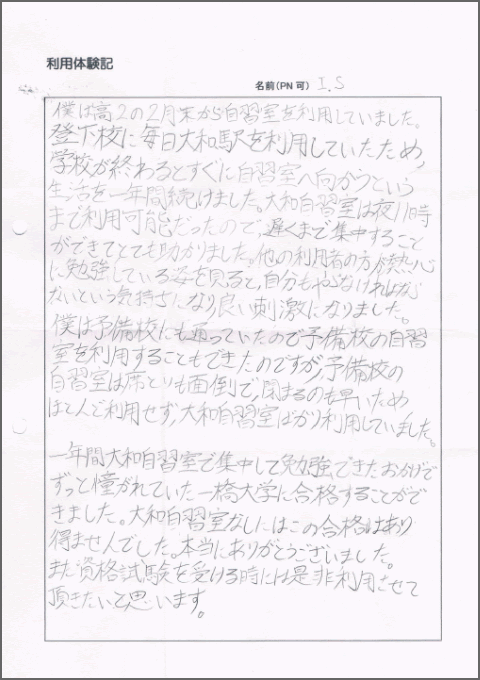 利用体験記
名前(PN 可) I.S
僕は高2の2月末から自習室を利用していました。
登下校に毎日大和駅を利用していたため、
学校が終わるとすぐに自習室へ向かうという
生活を一年間続けました。大和自習室は夜11時
まで利用可能だったので、遅くまで集中すること
ができてとても助かりました。他の利用者の方が熱心
に勉強している姿を見ると、自分もやらなければなら
ないという気持ちになり良い刺激になりました。
僕は予備校にも通っていたので予備校の自習
室を利用することもできたのですが、予備校の
自習室は席とりも面倒で、閉まるのも早いため
ほとんど利用せず、大和自習室ばかり利用していました。
一年間大和自習室で集中して勉強できたおかげで
ずっと憧れていた一橋大学に合格することがで
きました。大和自習室なしにはこの合格はあり
得ませんでした。本当にありがとうございました。
また資格試験を受ける時には是非利用させて
頂きたいと思います。